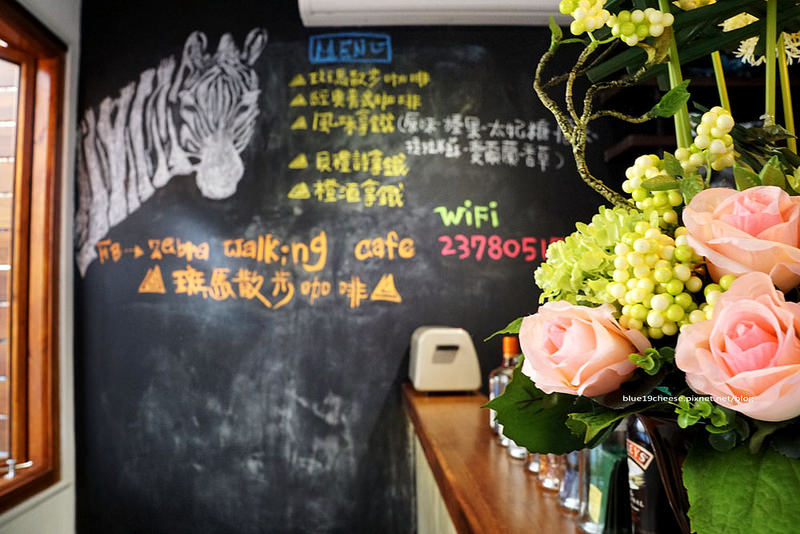 MENU
斑馬散步咖啡
經典美式咖啡
風味拿鐵(原味.榛果.太妃糖
焦蘭.香草)
貝禮詩拿鐵
橙酒拿鐵
WiFi
2378051
FB→ Zebra walking cafe
斑馬散步咖啡
blue19cheese.pixnet.net/blog